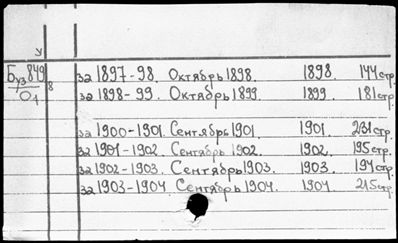 Буз 849
О1 8
за 1897-98. Октябрь 1898. 1898. 144 стр.
за 1898-99. Октябрь 1899. 1899. 181 стр.
за 1900-1901. Сентябрь 1901. 1901. 231 стр.
за 1901-1902. Сентябрь 1902. 1902. 195 стр.
за 1902-1903. Сентябрь 1903. 1903. 194 стр.
за 1903-1904 Сентябрь 1904. 1904 215 стр.